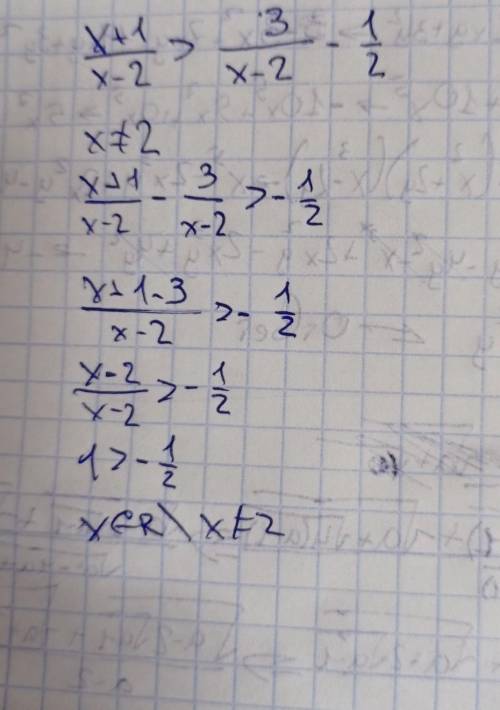 (x+1)/(x-2) > 3/(x-2) - 1/2
x≠2
(x+1)/(x-2) - 3/(x-2) > - 1/2
(x+1-3)/(x-2) > - 1/2
(x-2)/(x-2) > - 1/2
1 > - 1/2
x∈R \ x≠2